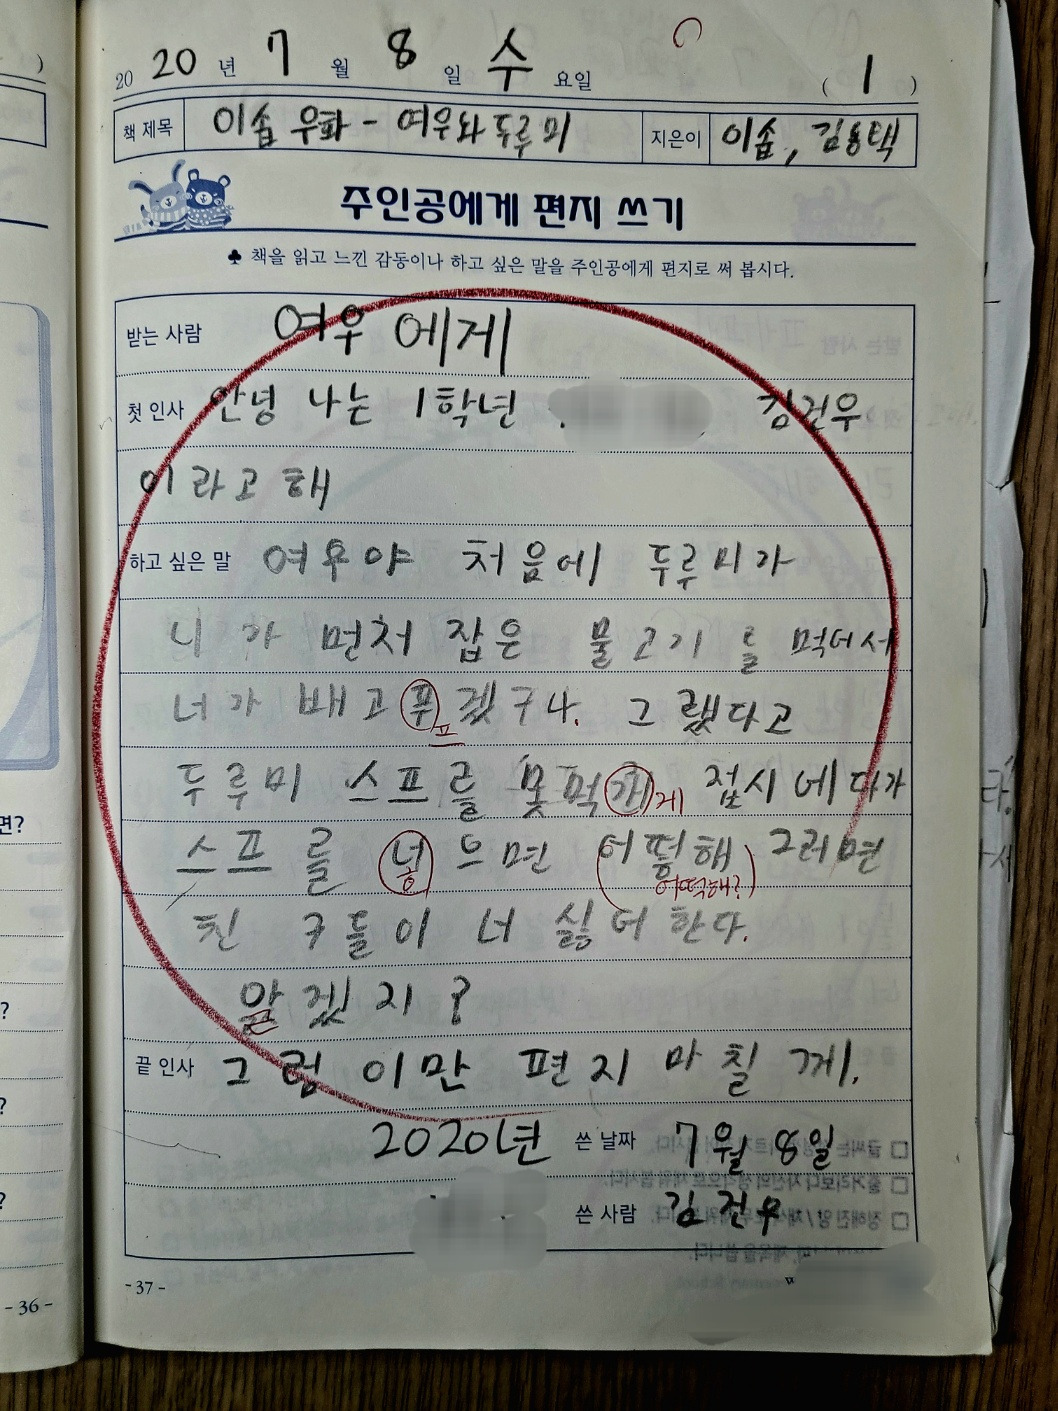 2020년 7월 8일 수요일 (1)
책 제목 이솝 우화 - 여우와 두루미 지은이 이솝, 김용택
주인공에게 편지 쓰기
♣ 책을 읽고 느낀 감동이나 하고 싶은 말을 주인공에게 편지로 써 봅시다.
받는 사람 여우 에게
첫 인사 안녕 나는 1학년 김건우
이라고 해
하고 싶은 말 여우야 처음에 두루미가
니가 먼처 잡은 물고기를 먹어서
너가 배고푸겠구나. 그렜다고
프
두루미 스프를 못먹개 접시에다가
게
스프를 넣으면 어떻해 그러면
어떡해?
친구들이 너 싫어한다.
알겠지?
끝 인사 그럼 이만 편지 마칠께.
2020년 쓴 날짜 7월 8일
쓴 사람 김건우
- 37 -
- 36 -
면?
?
?
?